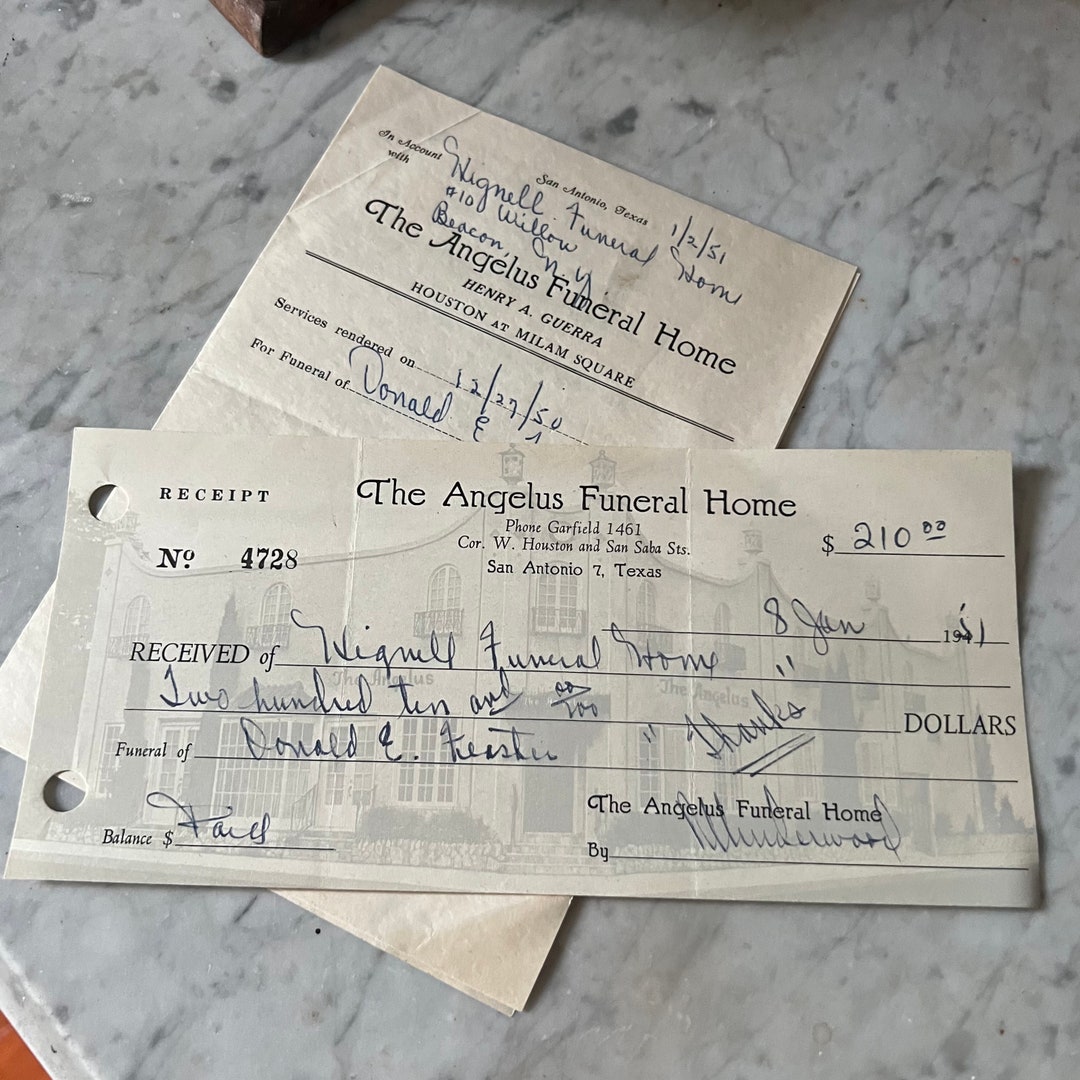 In Account
with
Hignell Funeral Home
San Antonio, Texas 1/2/51
#10 Willow
Beacon, N.Y.
The Angelus Funeral Home
HENRY A. GUERRA
HOUSTON AT MILAM SQUARE
Services rendered on 12/27/50
For Funeral of Donald E
RECEIPT
The Angelus Funeral Home
Phone Garfield 1461
Cor. W. Houston and San Saba Sts.
San Antonio 7, Texas
$ 210 00
Nº 4728
8 Jan 1951
RECEIVED of Hignell Funeral Home "
Two hundred ten and 00/100 DOLLARS
The Angelus
The Angelus
Funeral of Donald E. Feaster " Thanks
The Angelus Funeral Home
Balance $ Paid
By